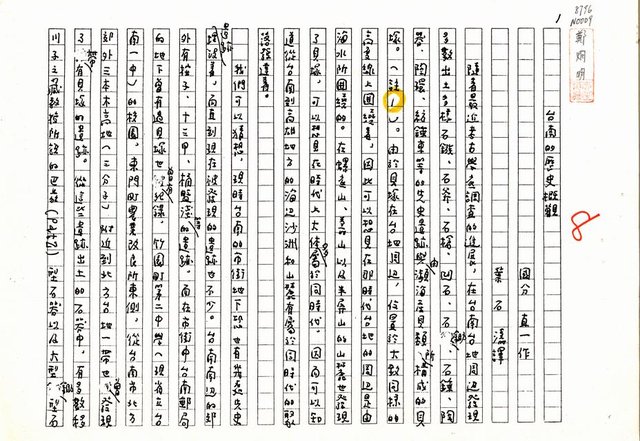 1
8776
N0009
鄭烱明
8
台南的歷史概觀
國分直一作
葉石濤譯
隨着最近考古學上調查的進展，在台南台地周邊發現
多數出土多樣石鏃、石斧、石槍、凹石、石錘、陶
器、陶環、紡錘車等的先史遺跡與由湖海產貝類所構成的貝
塚。（註1）。由於貝塚在台地周邊，位置於大致同樣的
高度線上圍繞着，因此可以想見在那時代台地的周邊是由
海水所圍繞的。在螺底山、壽山以及半屏山的山麓也發現
了貝塚，可以想見在時代上大多屬於同時代，因而可以知
道從台南到高雄地方的海邊沙洲和山麓有屬於同時代的聚
落發達着。
我們可以猜想，現時台南的市街地下恐也有為數先史
遺跡埋沒着，而直到現在被發現的遺跡也不少。台南南邊的郊
外有桶子、十三甲、桶盤淺的遺跡。而在市街中台南郵局
的地下曾有過貝塚也曾有紀錄，竹園町第二中學（現省立台
南一中）的校園，東門町農業改良所東側，從台南市北方
郊外三本木高地（三分子）附近到北方台地一帶也曾發現
了帶有貝塚的遺跡。從這些遺跡出土的石器中，有多數移
川子之藏教授所說的巴圖（Patu）型石器以及大型鋤型石